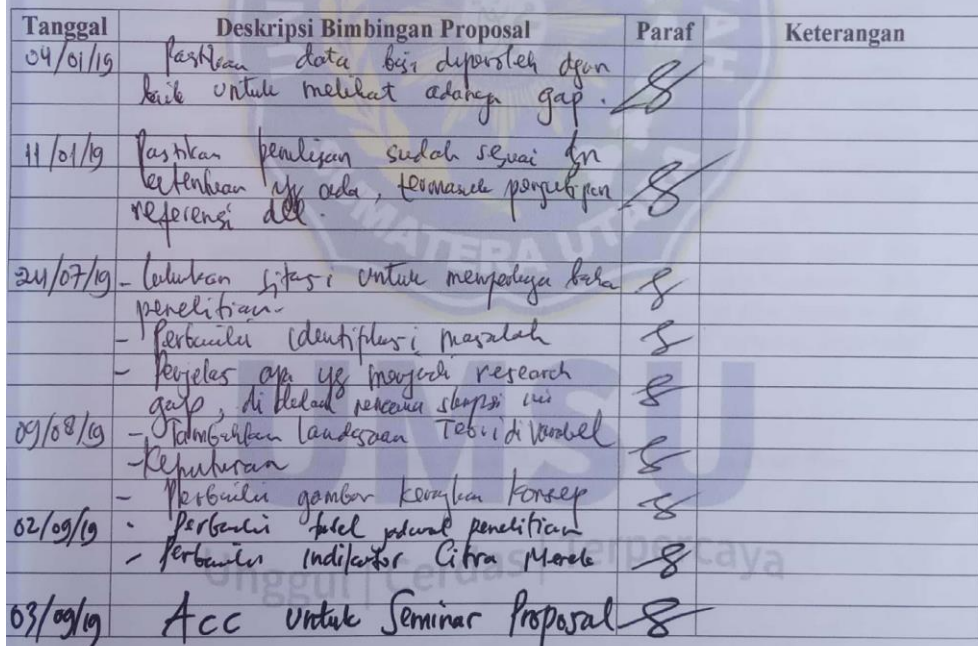 Tanggal Deskripsi Bimbingan Proposal Paraf Keterangan
04/01/19 Pastikan data bisa diperoleh dgan
baik untuk melihat adanya gap.
11/01/19 Pastikan penulisan sudah sesuai dn
ketentuan yg ada, termasuk pengutipan
referensi dll.
24/07/19 - Lakukan sitasi untuk
penelitian.
- Perbaiki identifikasi masalah
- Perjelas apa yg menjadi research
gap, di rencana skripsi ini
09/08/19 - Tambahkan Landasan Teori di Variabel
- Keputusan
- Perbaiki gambar kerangka Konsep
02/09/19 - Perbaiki tabel jadwal penelitian
- Perbaiki Indikator Citra Merek
03/09/19 Acc untuk Seminar Proposal
MATERA UTA
UMSU
Unggul | Cerdas | Terpercaya